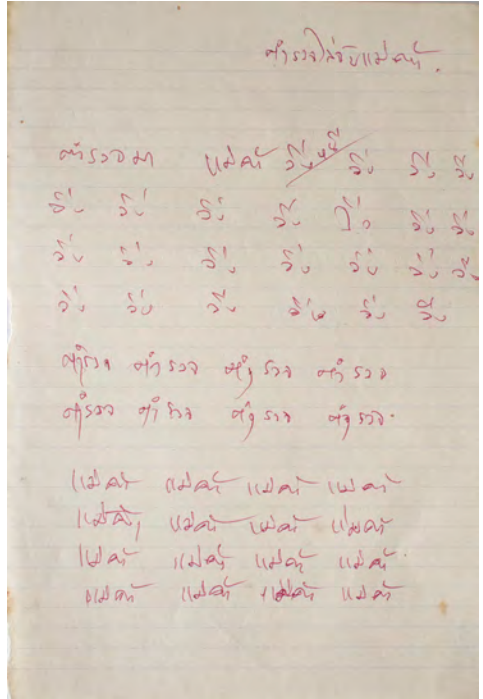 ตำรวจไล่จับแม่ค้า.
ตำรวจมา แม่ค้า วิ่ง วิ่ง วิ่ง
วิ่ง วิ่ง วิ่ง วิ่ง วิ่ง วิ่ง วิ่ง
วิ่ง วิ่ง วิ่ง วิ่ง วิ่ง วิ่ง วิ่ง
วิ่ง วิ่ง วิ่ง วิ่ง วิ่ง วิ่ง
ตำรวจ ตำรวจ ตำรวจ ตำรวจ
ตำรวจ ตำรวจ ตำรวจ ตำรวจ.
แม่ค้า แม่ค้า แม่ค้า แม่ค้า
แม่ค้า แม่ค้า แม่ค้า แม่ค้า
แม่ค้า แม่ค้า แม่ค้า แม่ค้า.
แม่ค้า แม่ค้า แม่ค้า แม่ค้า